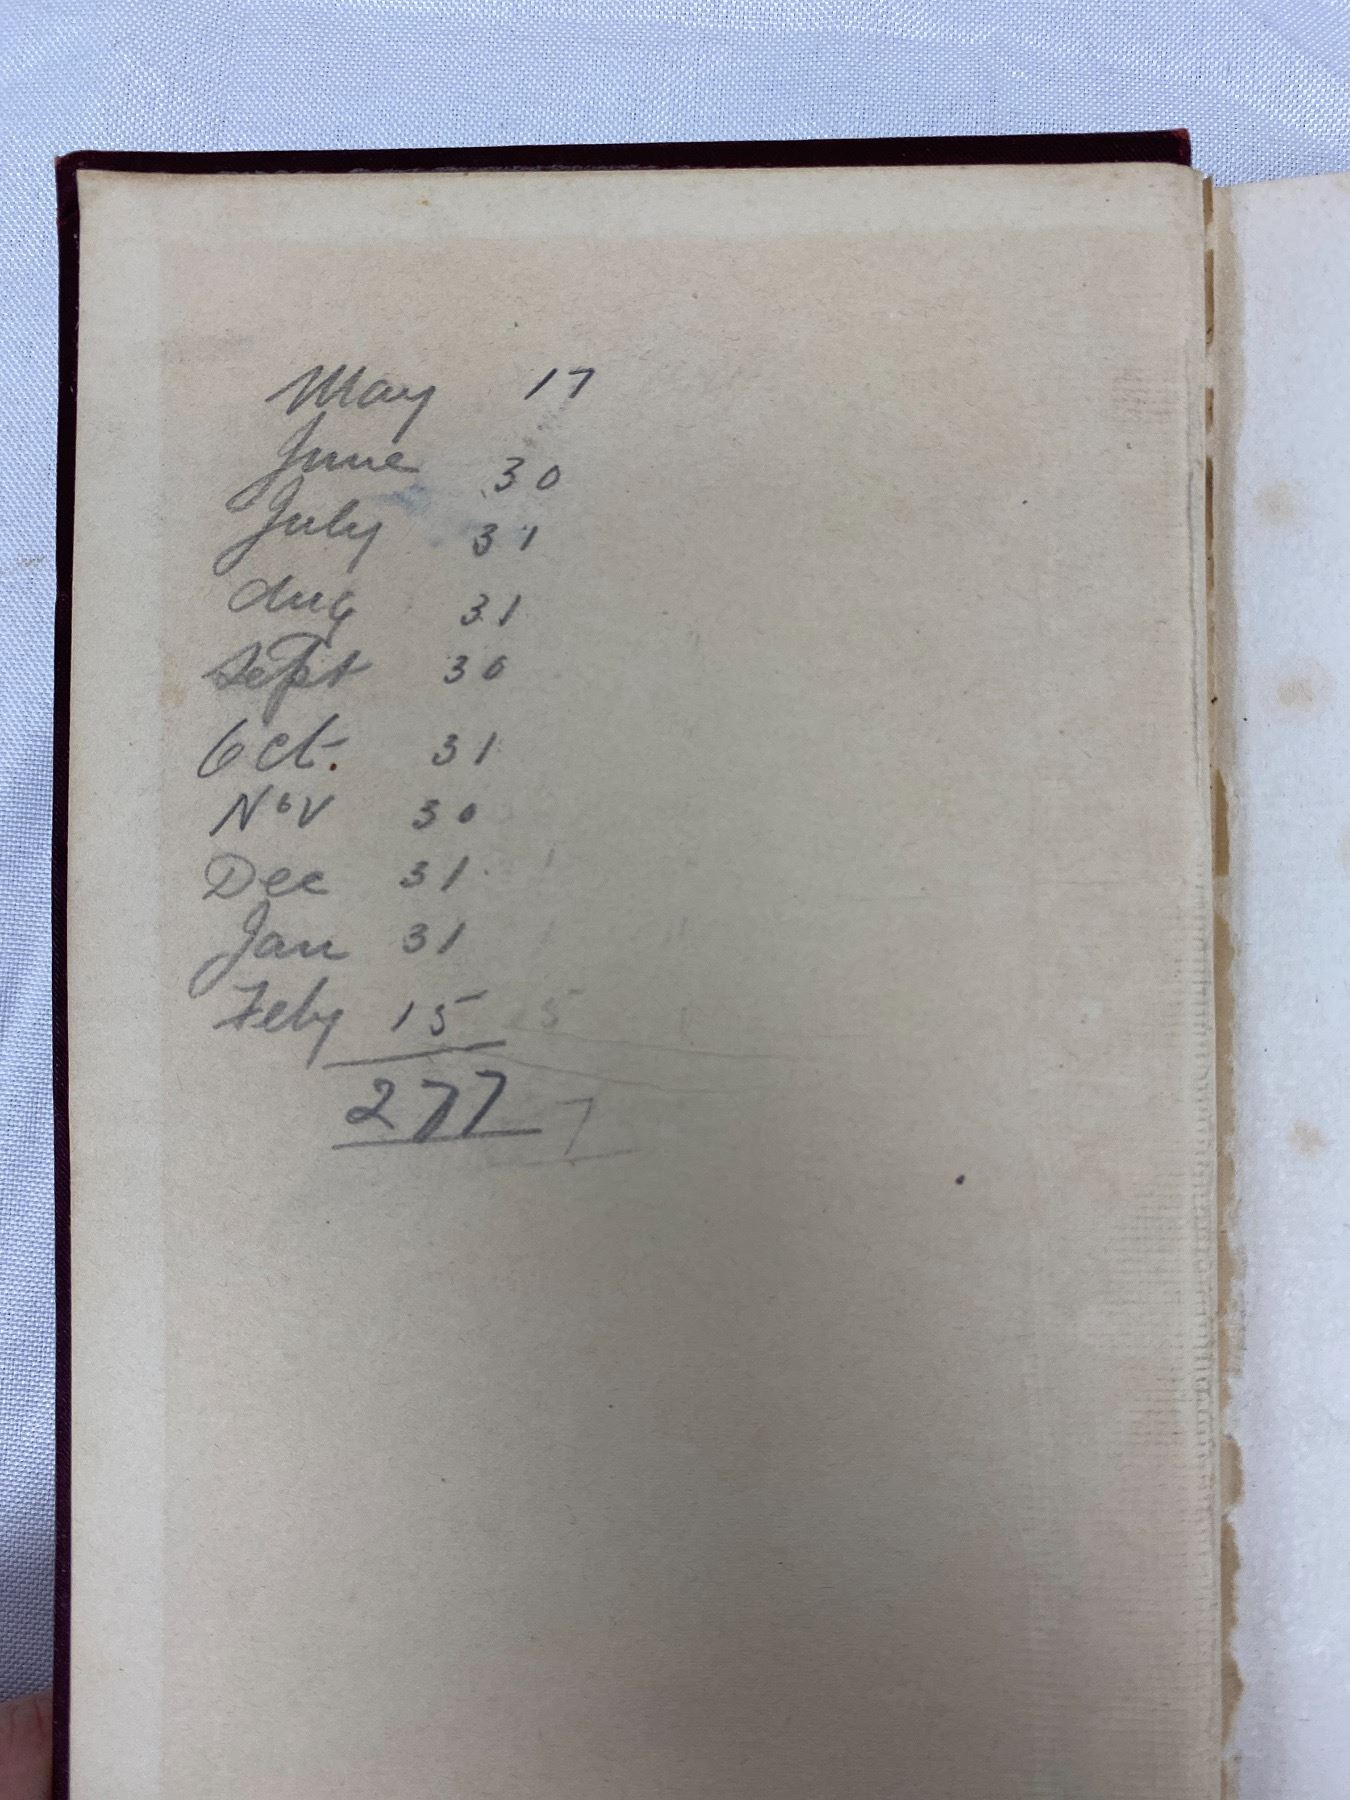 May 17
June 30
July 31
Aug 31
Sept 30
Oct. 31
Nov 30
Dec 31
Jan 31
Feby 15
277